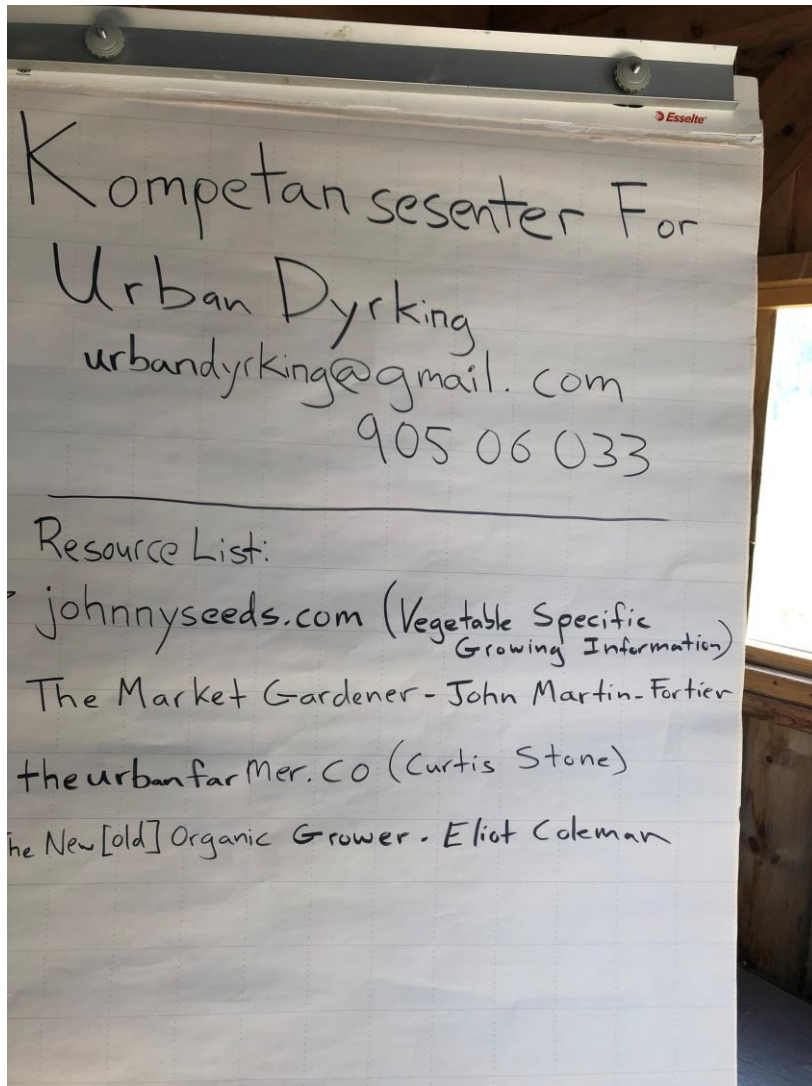 Esselte
Kompetansesenter For
Urban Dyrking
urbandyrking@gmail.com
905 06 033
Resource List:
johnnyseeds.com (Vegetable Specific
Growing Information)
The Market Gardener - John Martin-Fortier
theurbanfarmer.co (Curtis Stone)
he New [old] Organic Grower - Eliot Coleman